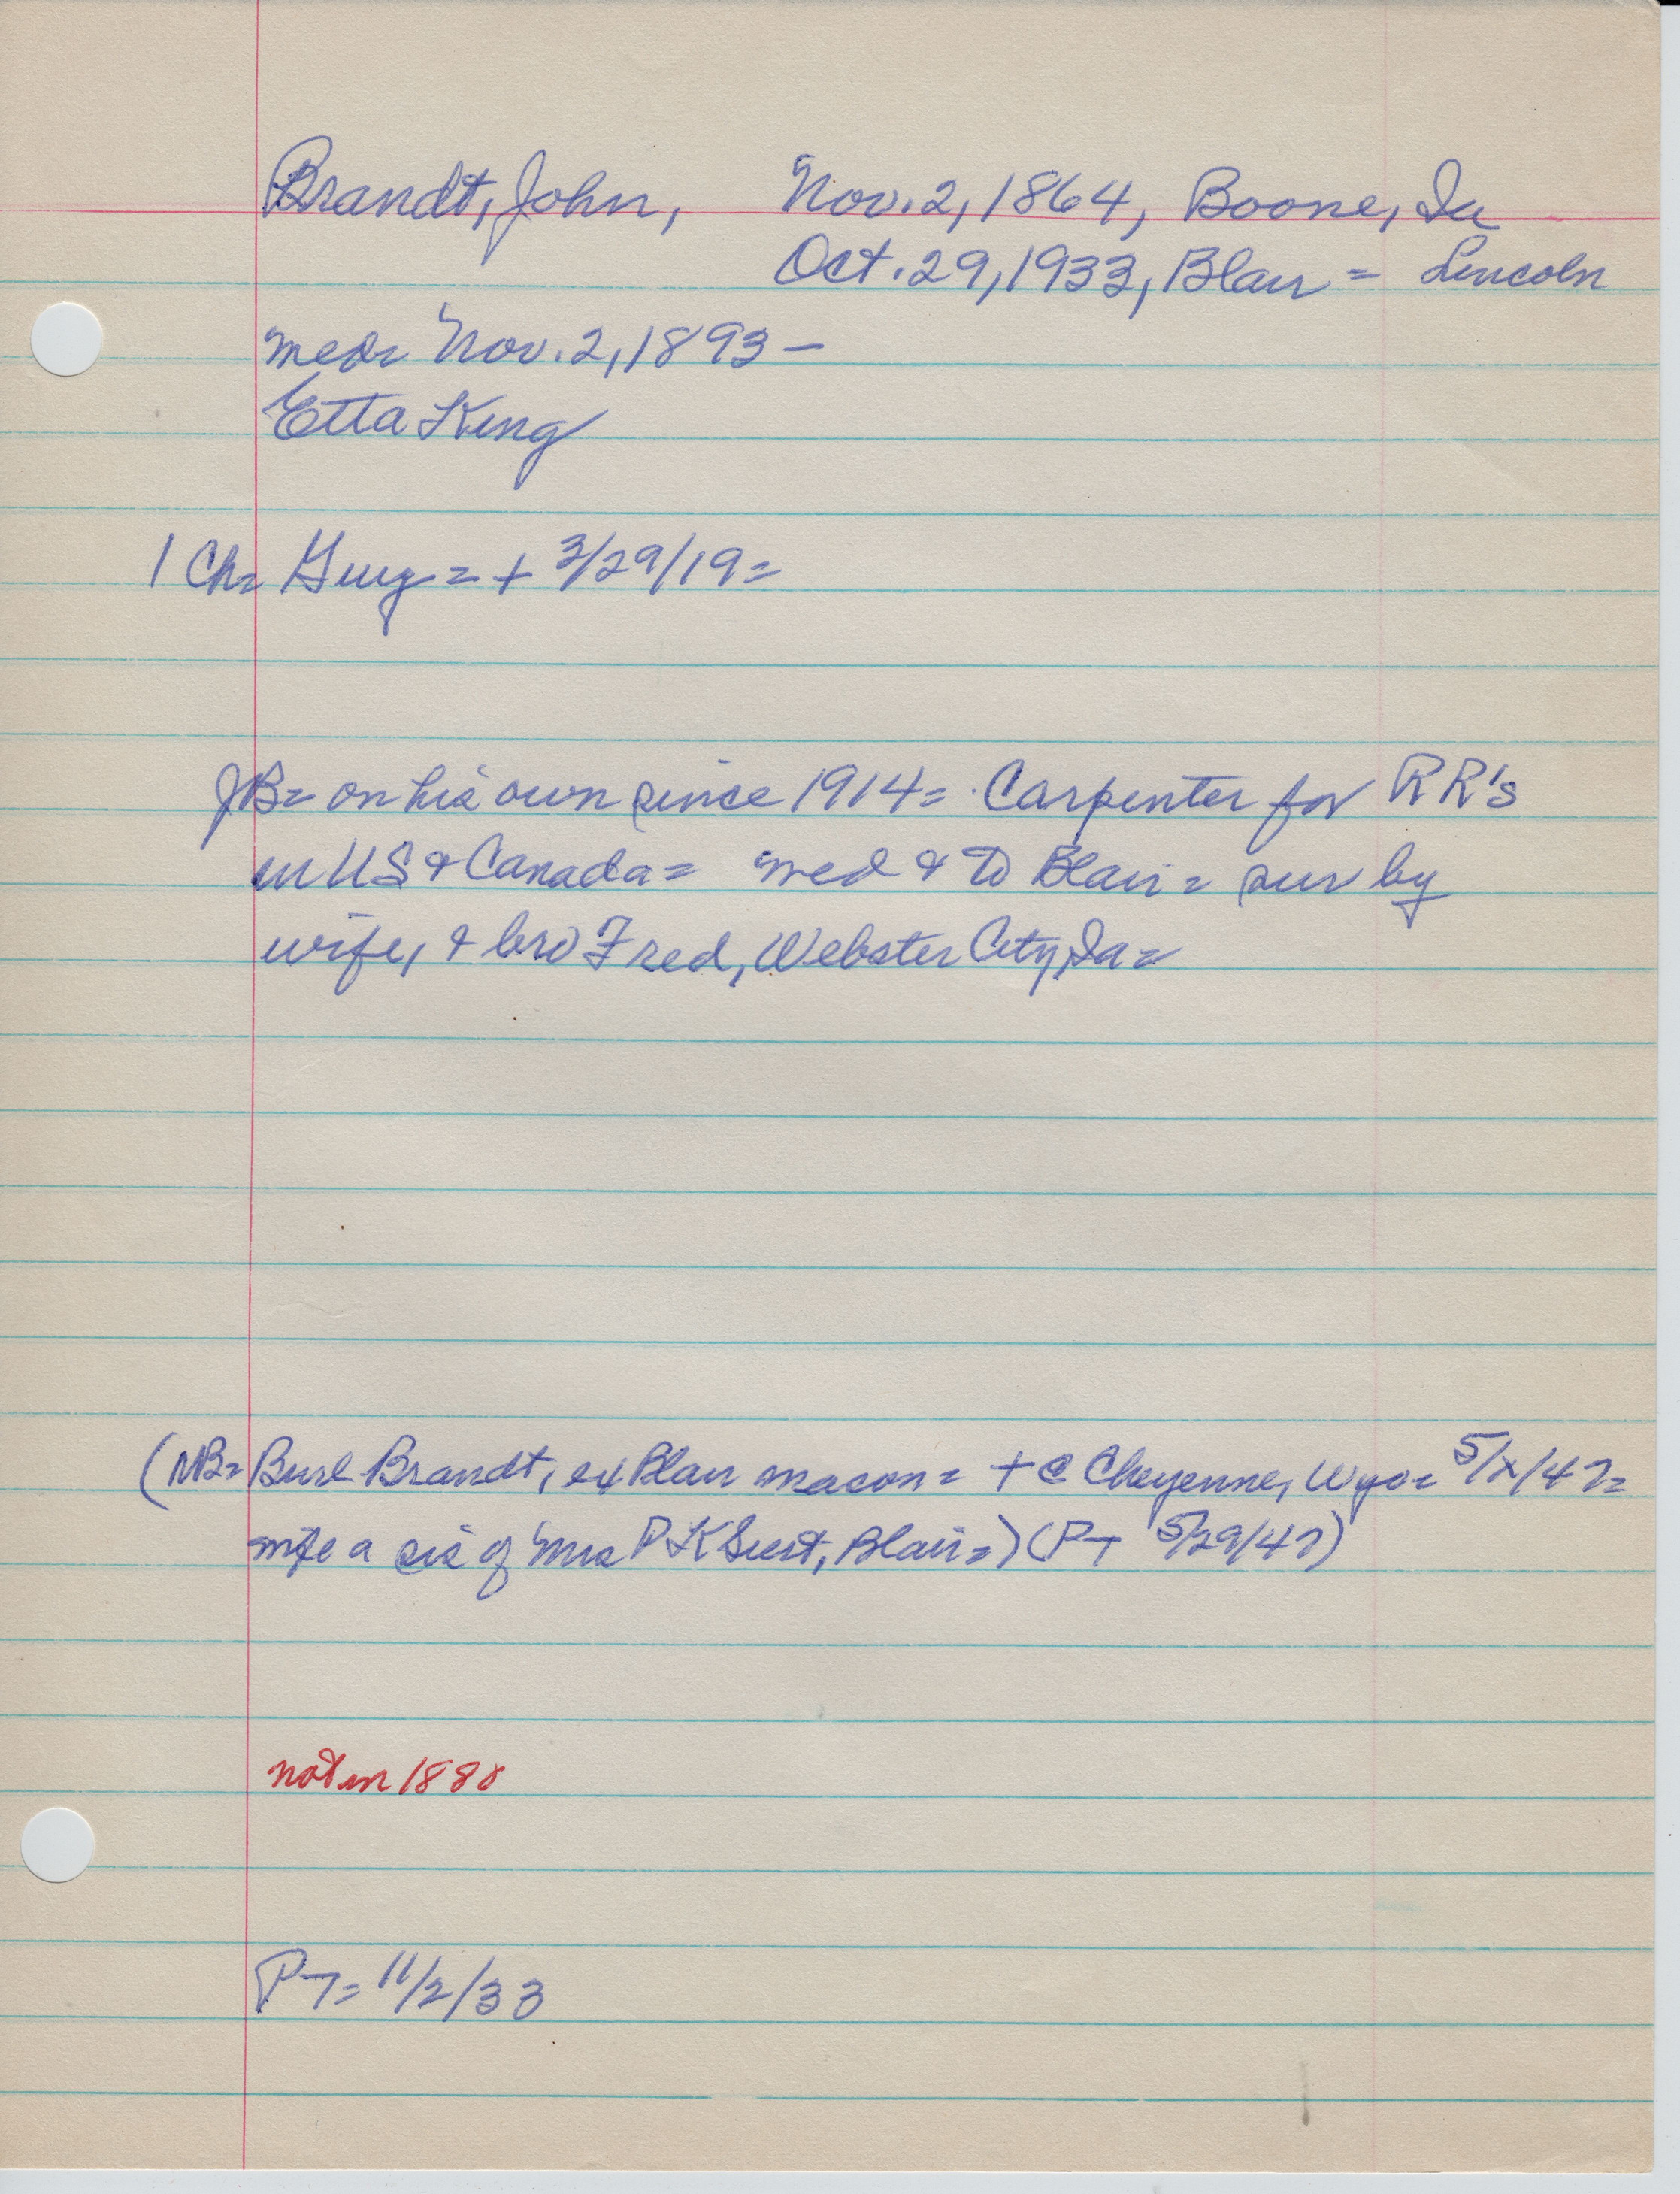 Brandt, John, Nov. 2, 1864, Boone, Ia
Oct. 29, 1933, Blair = Lincoln
med= Nov. 2, 1893 –
Etta King
1 Ch= = + 3/29/19=
JB= on his own since 1914= Carpenter for RR's
in US & Canada= med & to Blair= sur by
wife, & bro Fred, Webster City, Ia=
(NB= Burl Brandt, ex Blair mason= + @ Cheyenne, Wyo= 5/x/47=
wife a sis of Mrs P K Blair=) (PT 5/29/47)
not in 1880
PT= 11/2/33